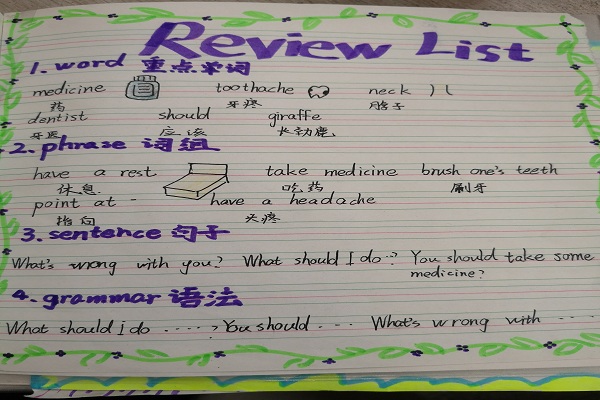 Review List
1. word 重点单词
medicine toothache neck
药 牙疼 脖子
dentist should giraffe
牙医 应该 长劲鹿
2. phrase 词组
have a rest take medicine brush one's teeth
休息 吃药 刷牙
point at - have a headache
指向 头疼
3. sentence 句子
What's wrong with you? What should I do..? You should take some
medicine?
4. grammar 语法
What should I do .....? You should.... What's wrong with ....